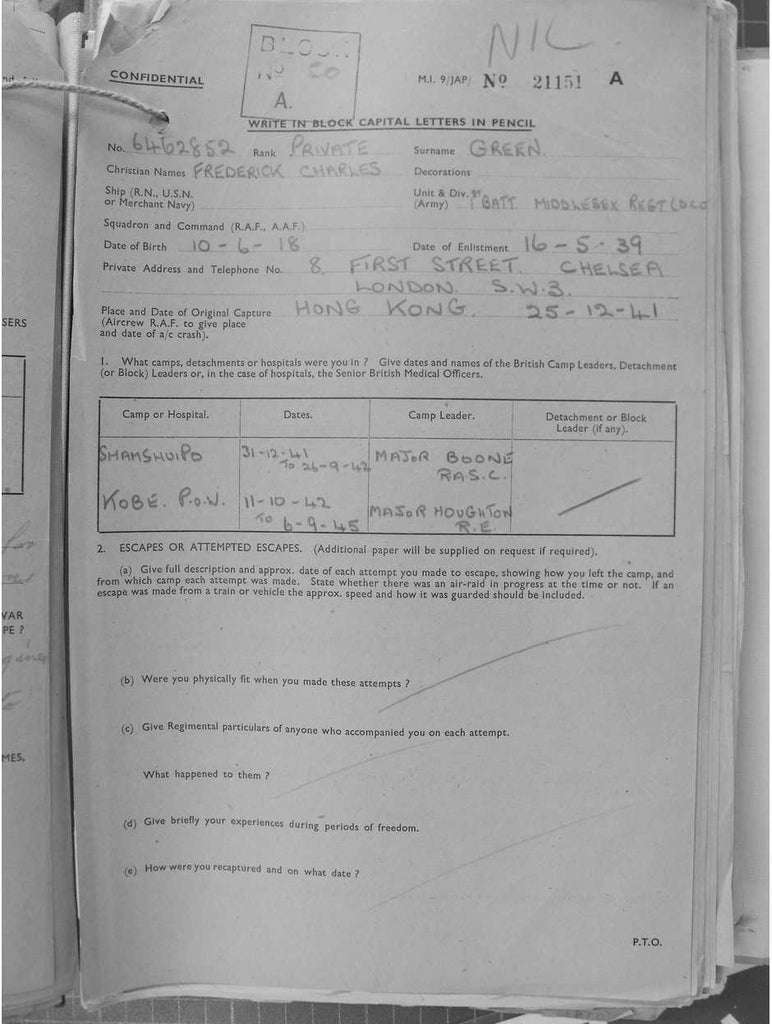 NIL
BLOCK
Nº 50
A.
CONFIDENTIAL
M.I. 9/JAP/ Nº 21151 A
WRITE IN BLOCK CAPITAL LETTERS IN PENCIL
No. 6462852 Rank PRIVATE Surname GREEN.
Christian Names FREDERICK CHARLES Decorations
Ship (R.N., U.S.N. or Merchant Navy)
Unit & Div. (Army) 1ST BATT MIDDLESEX REGT (D.C.O
Squadron and Command (R.A.F., A.A.F.)
Date of Birth 10-6-18 Date of Enlistment 16-5-39
Private Address and Telephone No. 8, FIRST STREET. CHELSEA
LONDON. S.W.3.
Place and Date of Original Capture HONG KONG. 25-12-41
(Aircrew R.A.F. to give place
and date of a/c crash).
1. What camps, detachments or hospitals were you in ? Give dates and names of the British Camp Leaders, Detachment
(or Block) Leaders or, in the case of hospitals, the Senior British Medical Officers.
Camp or Hospital. Dates. Camp Leader. Detachment or Block
Leader (if any).
SHAMSHUIPO 31-12-41 MAJOR BOONE
TO 26-9-42 R.A.S.C.
KOBE. P.O.W. 11-10-42 MAJOR HOUGHTON
TO 6-9-45 R.E.
2. ESCAPES OR ATTEMPTED ESCAPES. (Additional paper will be supplied on request if required).
(a) Give full description and approx. date of each attempt you made to escape, showing how you left the camp, and
from which camp each attempt was made. State whether there was an air-raid in progress at the time or not. If an
escape was made from a train or vehicle the approx. speed and how it was guarded should be included.
(b) Were you physically fit when you made these attempts ?
(c) Give Regimental particulars of anyone who accompanied you on each attempt.
What happened to them ?
(d) Give briefly your experiences during periods of freedom.
(e) How were you recaptured and on what date ?
P.T.O.
SERS
VAR
PE ?
MES.